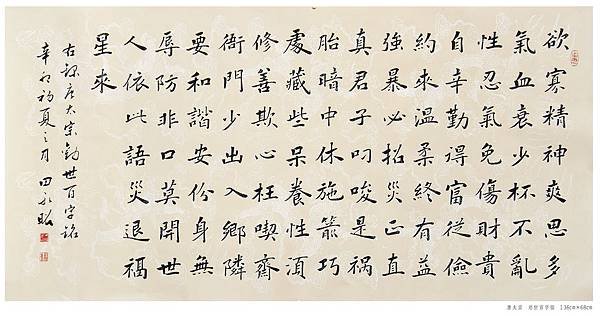 欲寡精神爽思多
氣血衰少杯不亂
性忍氣免傷財貴
自辛勤得富從儉
約來溫柔終有益
強暴必招災正直
真君子叼唆是禍
胎暗中休施箭巧
處藏些呆養性須
修善欺心枉喫齋
衙門少出入鄉隣
要和諧安份身無
辱防非口莫開世
人依此語災退福
星來
右錄唐太宗勸世百字銘
辛卯初夏之月田永昭
唐太宗 百字 136cm×68cm